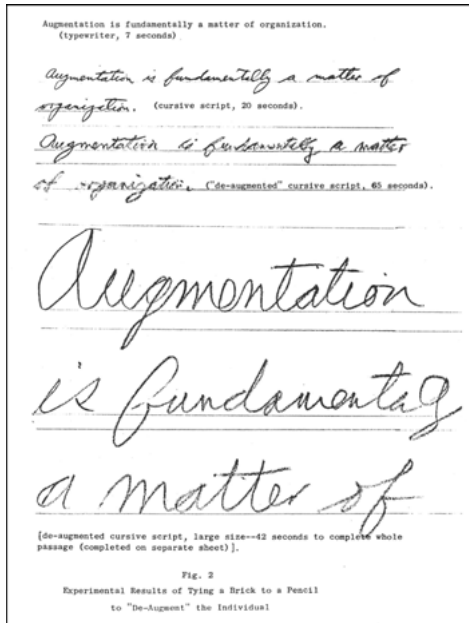 Augmentation is fundamentally a matter of organization.
(typewriter, 7 seconds)
Augmentation is fundamentally a matter of
organization. (cursive script, 20 seconds).
Augmentation is fundamentally a matter
of organization. ("de-augmented" cursive script, 65 seconds).
Augmentation
is fundamentag
a matter of
[de-augmented cursive script, large size--42 seconds to complete whole
passage (completed on separate sheet)].
Fig. 2
Experimental Results of Tying a Brick to a Pencil
to "De-Augment" the Individual